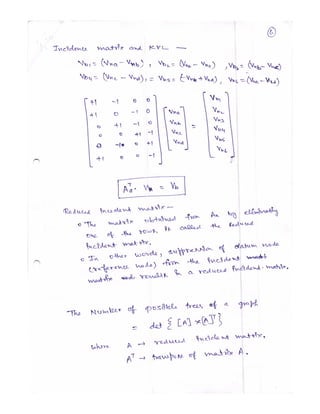 6
Incident matrix and KVL —
Vb1 = (Vna - Vnb), Vb2 = (Vna - Vnc), Vb3 = (Vnb - Vnc)
Vb4 = (Vnc - Vnd), = Vb5 = (-Vnb + Vnd), Vb6 = (Vna - Vnd)
+1 -1 0 0
+1 0 -1 0 Vna
0 +1 -1 0 Vnb
0 0 +1 -1 = Vb4
0 -1 0 +1 Vnc Vb5
+1 0 0 -1 Vnd Vb6
Reduced Incident matrix —
o The matrix obtained from Aa by eliminating
one of the rows. is called the Reduced
Incident matrix.
o In other words, suppression of datum node
(reference node) from the Incident
matrix results in a reduced Incident matrix.
The Number of possible trees of a graph
= det { [A] x [A]^T }
where A → reduced Incident matrix.
A^T → transpose of matrix A.